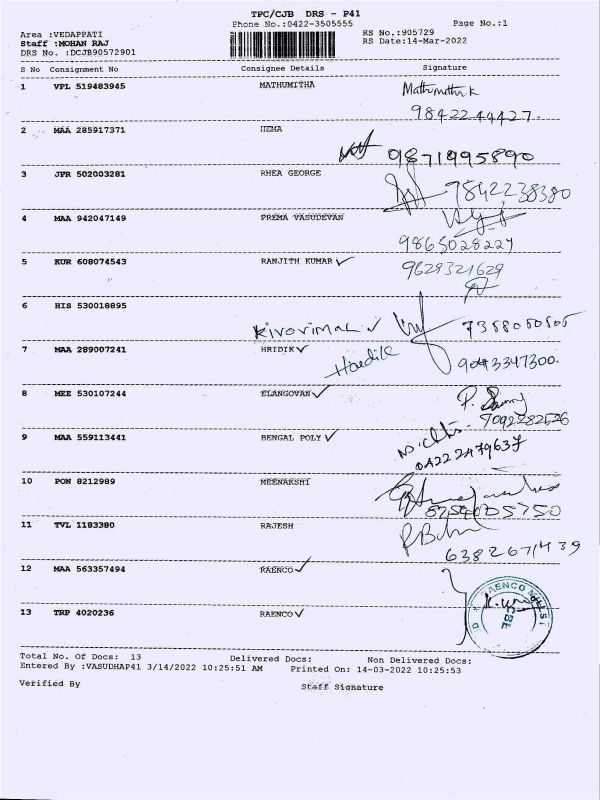 TPC/CJB DRS - P41
Phone No.:0422-3505555 Page No.:1
Area :VEDAPPATI RS No.:905729
Staff :MOHAN RAJ RS Date:14-Mar-2022
DRS No. :DCJB90572901
S No Consignment No Consignee Details Signature
1 VPL 519483945 MATHUMITHA Mathumitha k
9842244427.
2 MAA 285917371 HEMA
9871995890
3 JPR 502003281 RHEA GEORGE
9842238380
4 MAA 942047149 PREMA VASUDEVAN
9865028227
5 KUR 608074543 RANJITH KUMAR ✓ 9629321629
6 HIS 530018895
Kivovimal ✓ 7358050505
7 MAA 289007241 HRIDIK ✓ Hardik 9043347300.
8 MEE 530107244 ELANGOVAN ✓ P.
7092282526
9 MAA 559113441 BENGAL POLY ✓
04222479637
10 PON 8212989 MEENAKSHI
11 TVL 1183380 RAJESH
6382671439
12 MAA 563357494 RAENCO ✓
RAENCO MILLS
CBE
13 TRP 4020236 RAENCO ✓
Total No. Of Docs: 13 Delivered Docs: Non Delivered Docs:
Entered By :VASUDHAP41 3/14/2022 10:25:51 AM Printed On: 14-03-2022 10:25:53
Verified By Staff Signature